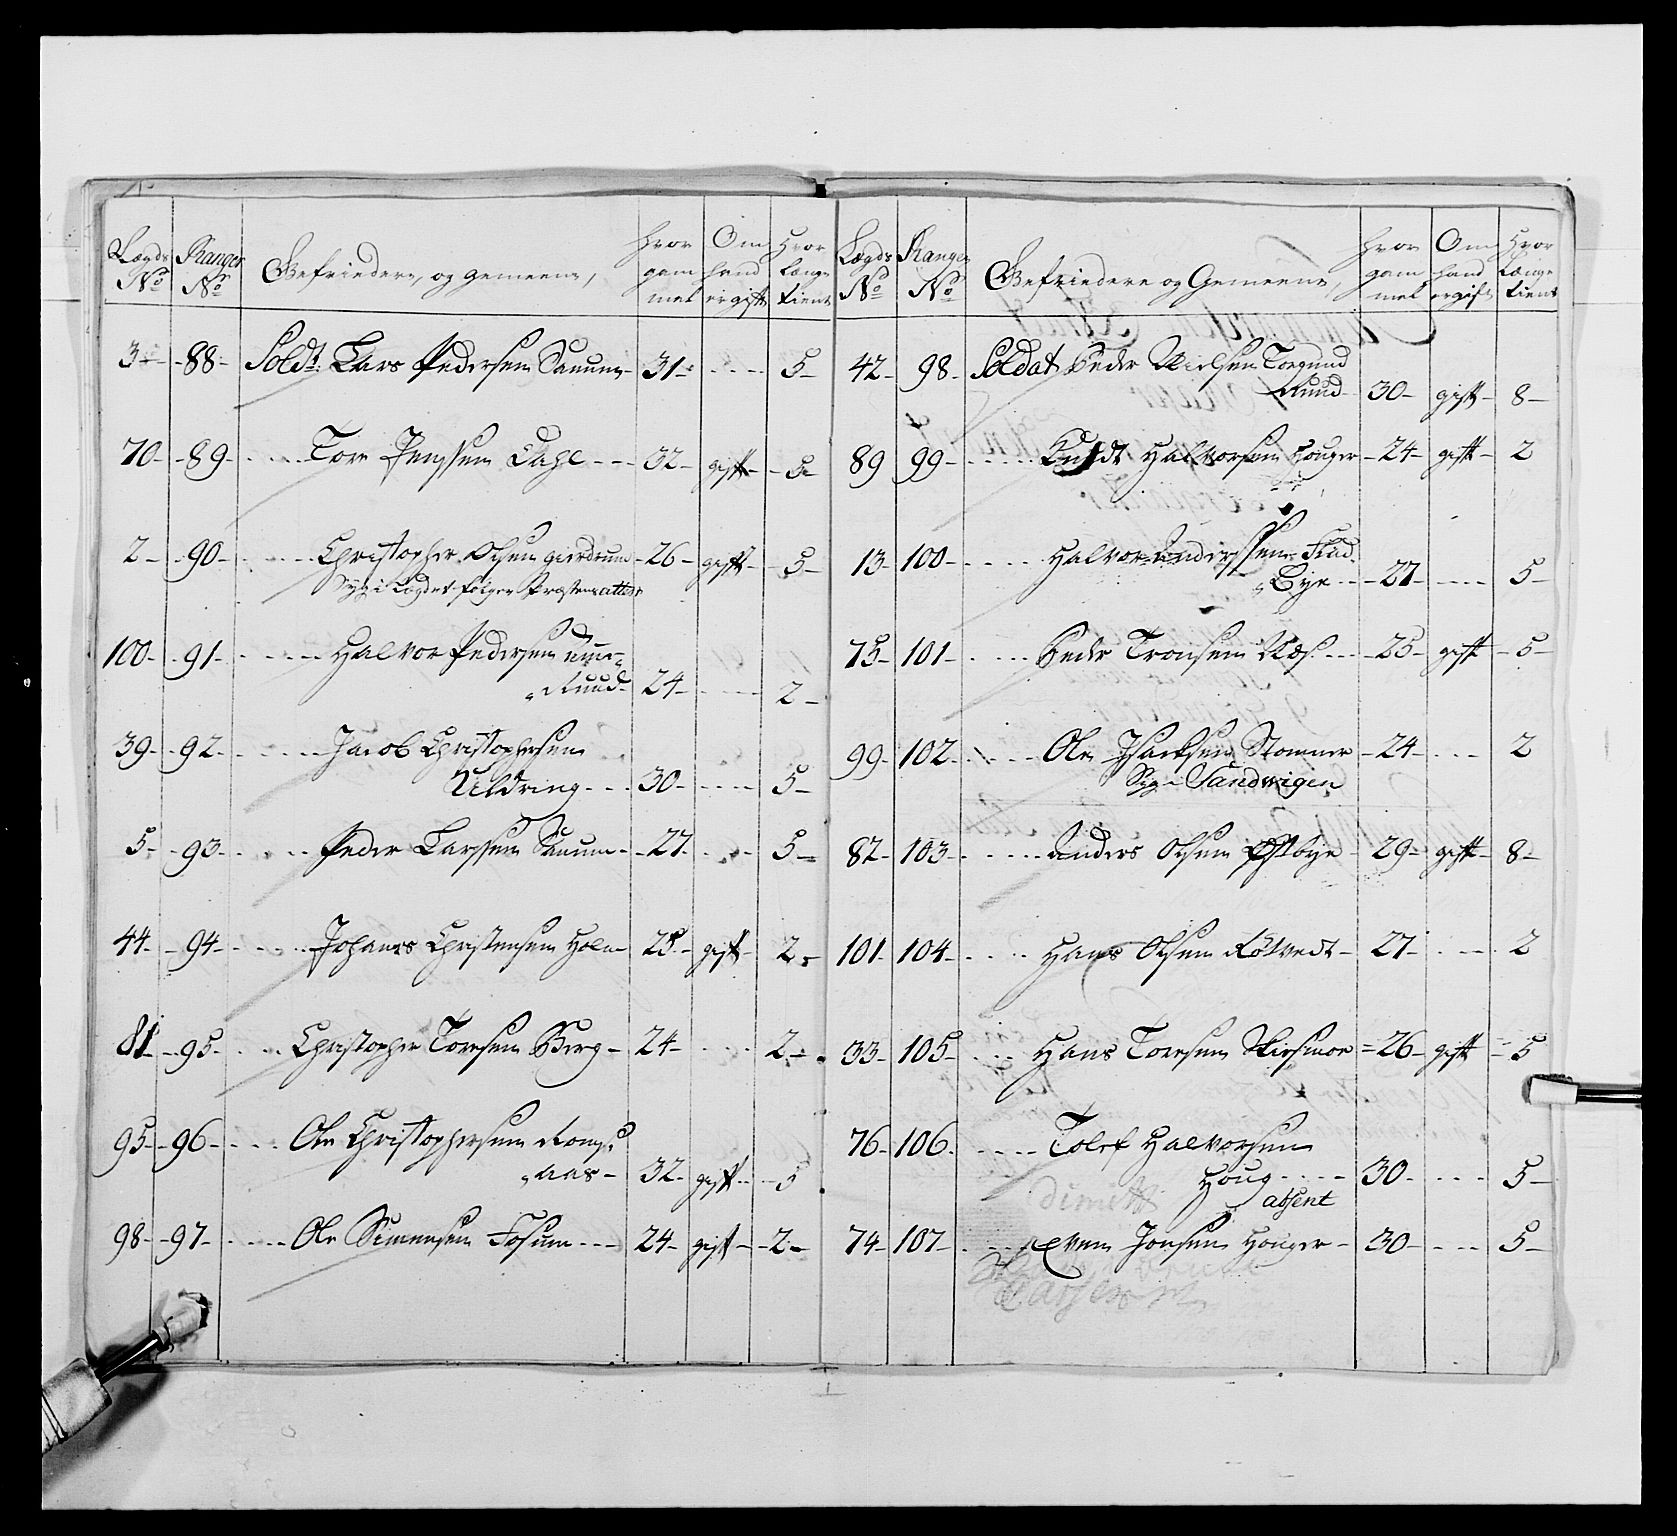 Lægds No Ranger No Gefriedere, og gemeene, Hvor gam mel Om hand er gift Hvor længe tient
3 - 88 - Soldt. Lars Pedersen Sauum - 31 - - - 5 -
70 - 89 - Tore Jenssen Dahl - 32 - gift - 5
2 - 90 - Christopher Olsen gierdrum - 26 - gift - 5 -
Syg i Lægdet følger Præstens attest
100 - 91 - Halvor Pedersen
Ruud - 24 - - - 2 -
39 - 92 - Jacob Christophersen
Uldring - 30 - - - 5 -
5 - 93 - Peder Larssen Sauum - 27 - - - 5 -
44 - 94 - Johanes Christensen Holm - 25 - gift - 2
81 - 95 - Christopher Toresen Berg - 24 - - - 2 -
95 - 96 - Ole Christophersen Rongs
aas - 32 - gift - 5
98 - 97 - Ole Simensen Fosum - 24 - gift - 2 -
Lægds No Ranger No Gefriedere og Gemeene, Hvor gam mel Om hand er gift Hvor Længe tient
42 - 98 - Soldat Peder Nielsen Torgund
Ruud - 30 - gift - 8 -
89 99 - Knudt Halvorsen Houger - 24 - gift - 2
13 - 100 - Halvor Anderssen Stad
Bye - 27 - - - 5 -
75 - 101 - Peder Tronsen Næs - 25 - gift - 5 -
99 - 102 - Ole Isacksen Stommer - 24 - - - 2
Syg i Sandwigen
82 - 103 - Anders Olsen Østbye - 29 - gift - 8 -
101 - 104 - Hans Olsen Røtvedt - 27 - - - 2
33 - 105 - Hans Toresen Skiesmoe - 26 - gift - 5
76 - 106 - Tolef Halvorsen
Houg - 30 - - - 5 -
dimitt absent
74 - 107 - Even Jonsen Houger - 30 - - - 5 -